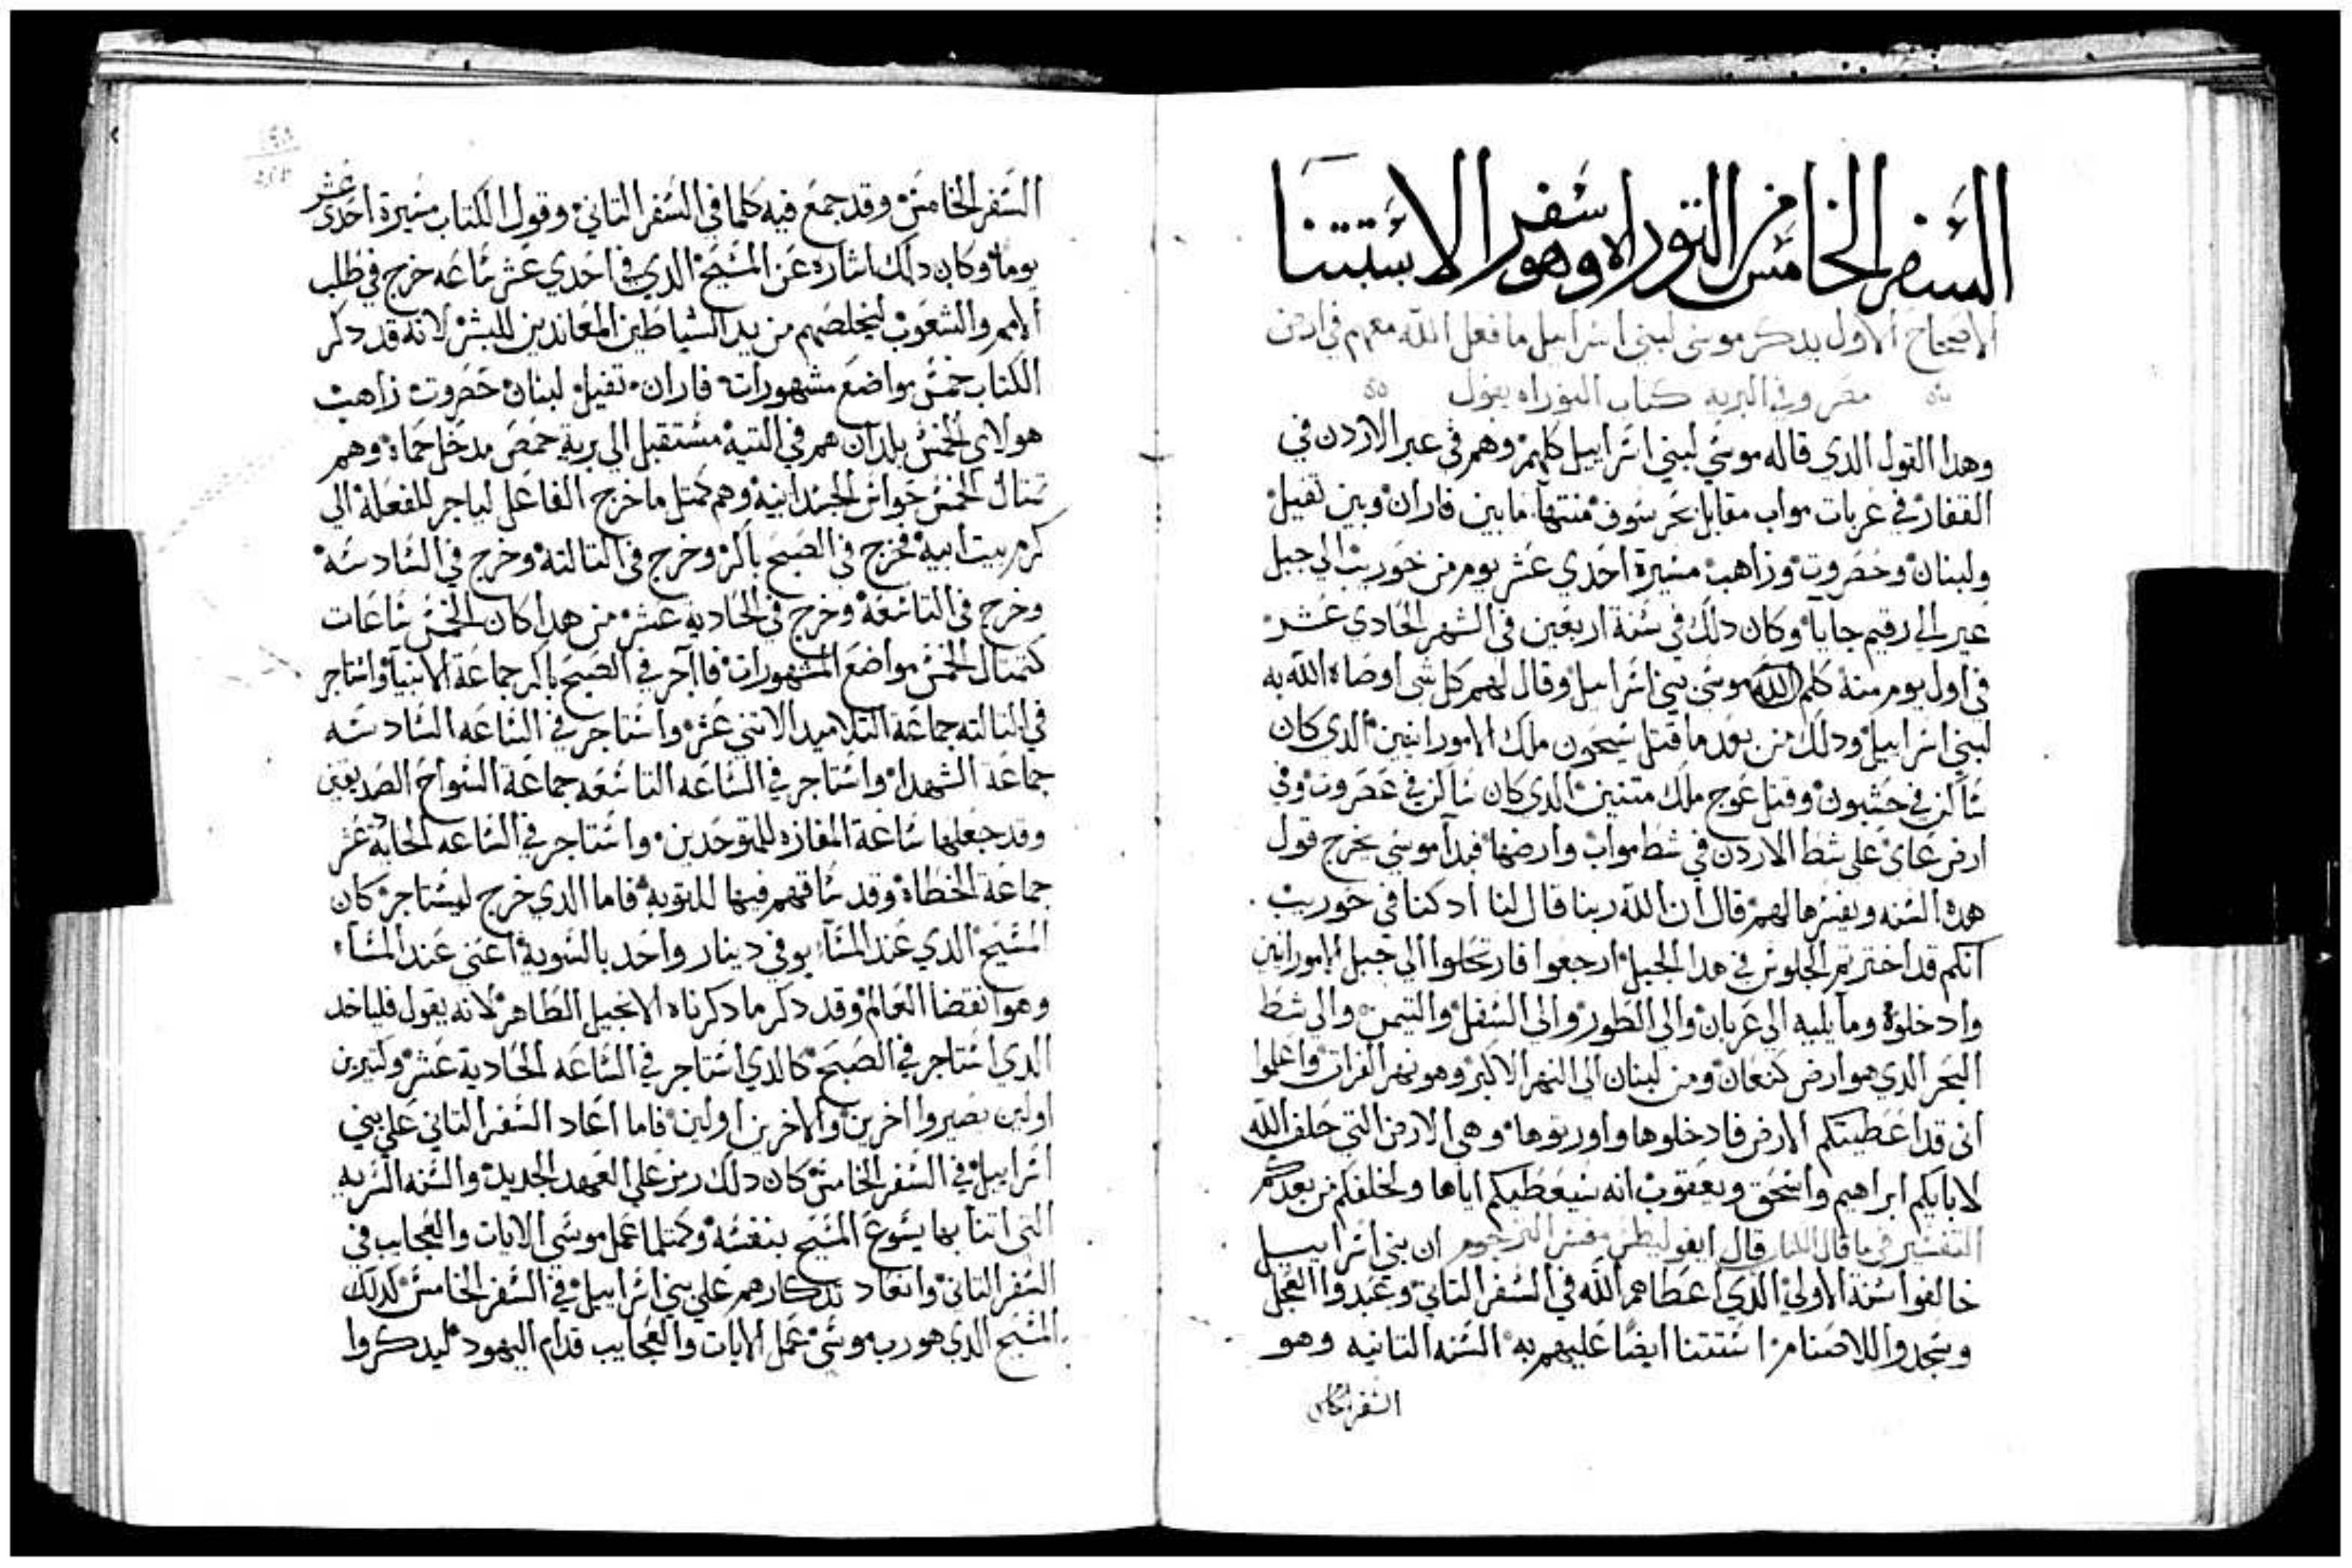 السفر الخامس من التوراه وهو سفر الاستتنا
الاصحاح الاول يدكر موسى لبني اسراييل ما فعل الله معهم في ارض
مصر وفي البريه كتاب التوراه يقول
وهدا القول الدي قاله موسي لبني اسراييل كلهم وهم في عبر الاردن في
القفار في عربات مواب مقابل بحر سوف منتها ما بين فاران وبين تفيل
ولبنان وحصروت وزاهب مسيرة احدي عشر يوم من حوريب الي جبل
عير الي رقيم جايا وكان دلك في سنة اربعين في الشهر الحادي عشر
في اول يوم منه كلم الله موسي بني اسراييل وقال لهم كل شي اوصاه الله به
لبني اسراييل ودلك من بعد ما قتل سيحون ملك الامورانيين الدي كان
ساكن في حشبون وقتل عوج ملك متنين الدي كان ساكن في عصروت وفي
ارض عاي على شط الاردن في شط مواب وارضها فبدا موسي يخرج قول
هده السنه ويفسرها لهم قال ان الله ربنا قال لنا اد كنا في حوريب
انكم قد اخترتم الجلوس في هدا الجبل ارجعوا فارتحلوا الي جبل الامورانين
وادخلوه وما يليه الي عربان والي الطور والى السفل والتيمن والى شط
البحر الدي هو ارض كنعان ومن لبنان الى النهر الاكبر وهو نهر الفرات واعلموا
اني قد اعطيتكم الارض فادخلوها واورتوها وهي الارض التي حلف الله
لابايكم ابراهيم واسحق ويعقوب انه سيعطيكم اياها ولخلفكم من بعدكم
التفسير في ما قال الكتاب قال ابفوليطس مفسر الترجوم ان بني اسراييل
خالفوا سنة الاولي الدي اعطاهم الله في السفر التاني وعبدوا العجل
وسجدوا للاصنام استتنا ايضا عليهم به السنه التانيه وهو
السفر الخامس
السفر الخامس وقد جمع فيه كلما في السفر التاني وقول الكتاب مسيرة احدى عشر
يوما وكان دلك اشاره عن المسيح الدي في احدي عشر ساعه خرج في طلب
الامم والشعوب ليخلصهم من يد الشياطين المعاندين للبشر لانه قد دكر
الكتاب خمس مواضع مشهورات فاران تفيل لبنان حصروت زاهب
هولاي الخمس بلدان هم في التيه مستقبل الي برية حمص مدخل حماة وهم
متال الخمس حواس الجسدانيه وهم كمتل ما خرج الفاعل لياجر للفعله الي
كرم بيت ابيه فخرج في الصبح باكر وخرج في التالته وخرج في السادسه
وخرج في التاسعه وخرج في الحاديه عشر من هدا كان الخمس ساعات
كمتال الخمس مواضع المشهورات فاآجر في الصبح باكر جماعة الانبيا واستاجر
في التالته جماعة التلاميد الاتني عشر واستاجر في الساعه السادسه
جماعة الشهدا واستاجر في الساعه التاسعه جماعة السواح الصديقين
وقد جعلها ساعة المفازه للمتوحدين واستاجر في الساعه الحاديه عشر
جماعة الخطاه وقد ساقهم فيها للتوبه فاما الدي خرج ليستاجر كان
المسيح الدي عند المسآ يوفي دينار واحد بالسويه اعني عند المسآ
وهو انقضا العالم وقد دكر ما دكرناه الانجيل الطاهر لانه يقول فلياخد
الدي استاجر في الصبح كالدي استاجر في الساعه الحادية عشر وكتيرين
اولين يصيروا اخرين والاخرين اولين فاما اعاد السفر التاني علي بني
اسراييل في السفر الخامس كان دلك رمز علي العهد الجديد والسنه السريه
التي اتنا بها يسوع المسيح بنفسه وكمتلما عمل موسي الايات والعجايب في
السفر التاني وانعاد تدكارهم علي بني اسراييل في السفر الخامس كدلك
المسيح الدي هو رب موسي عمل الايات والعجايب قدام اليهود ليدكروا